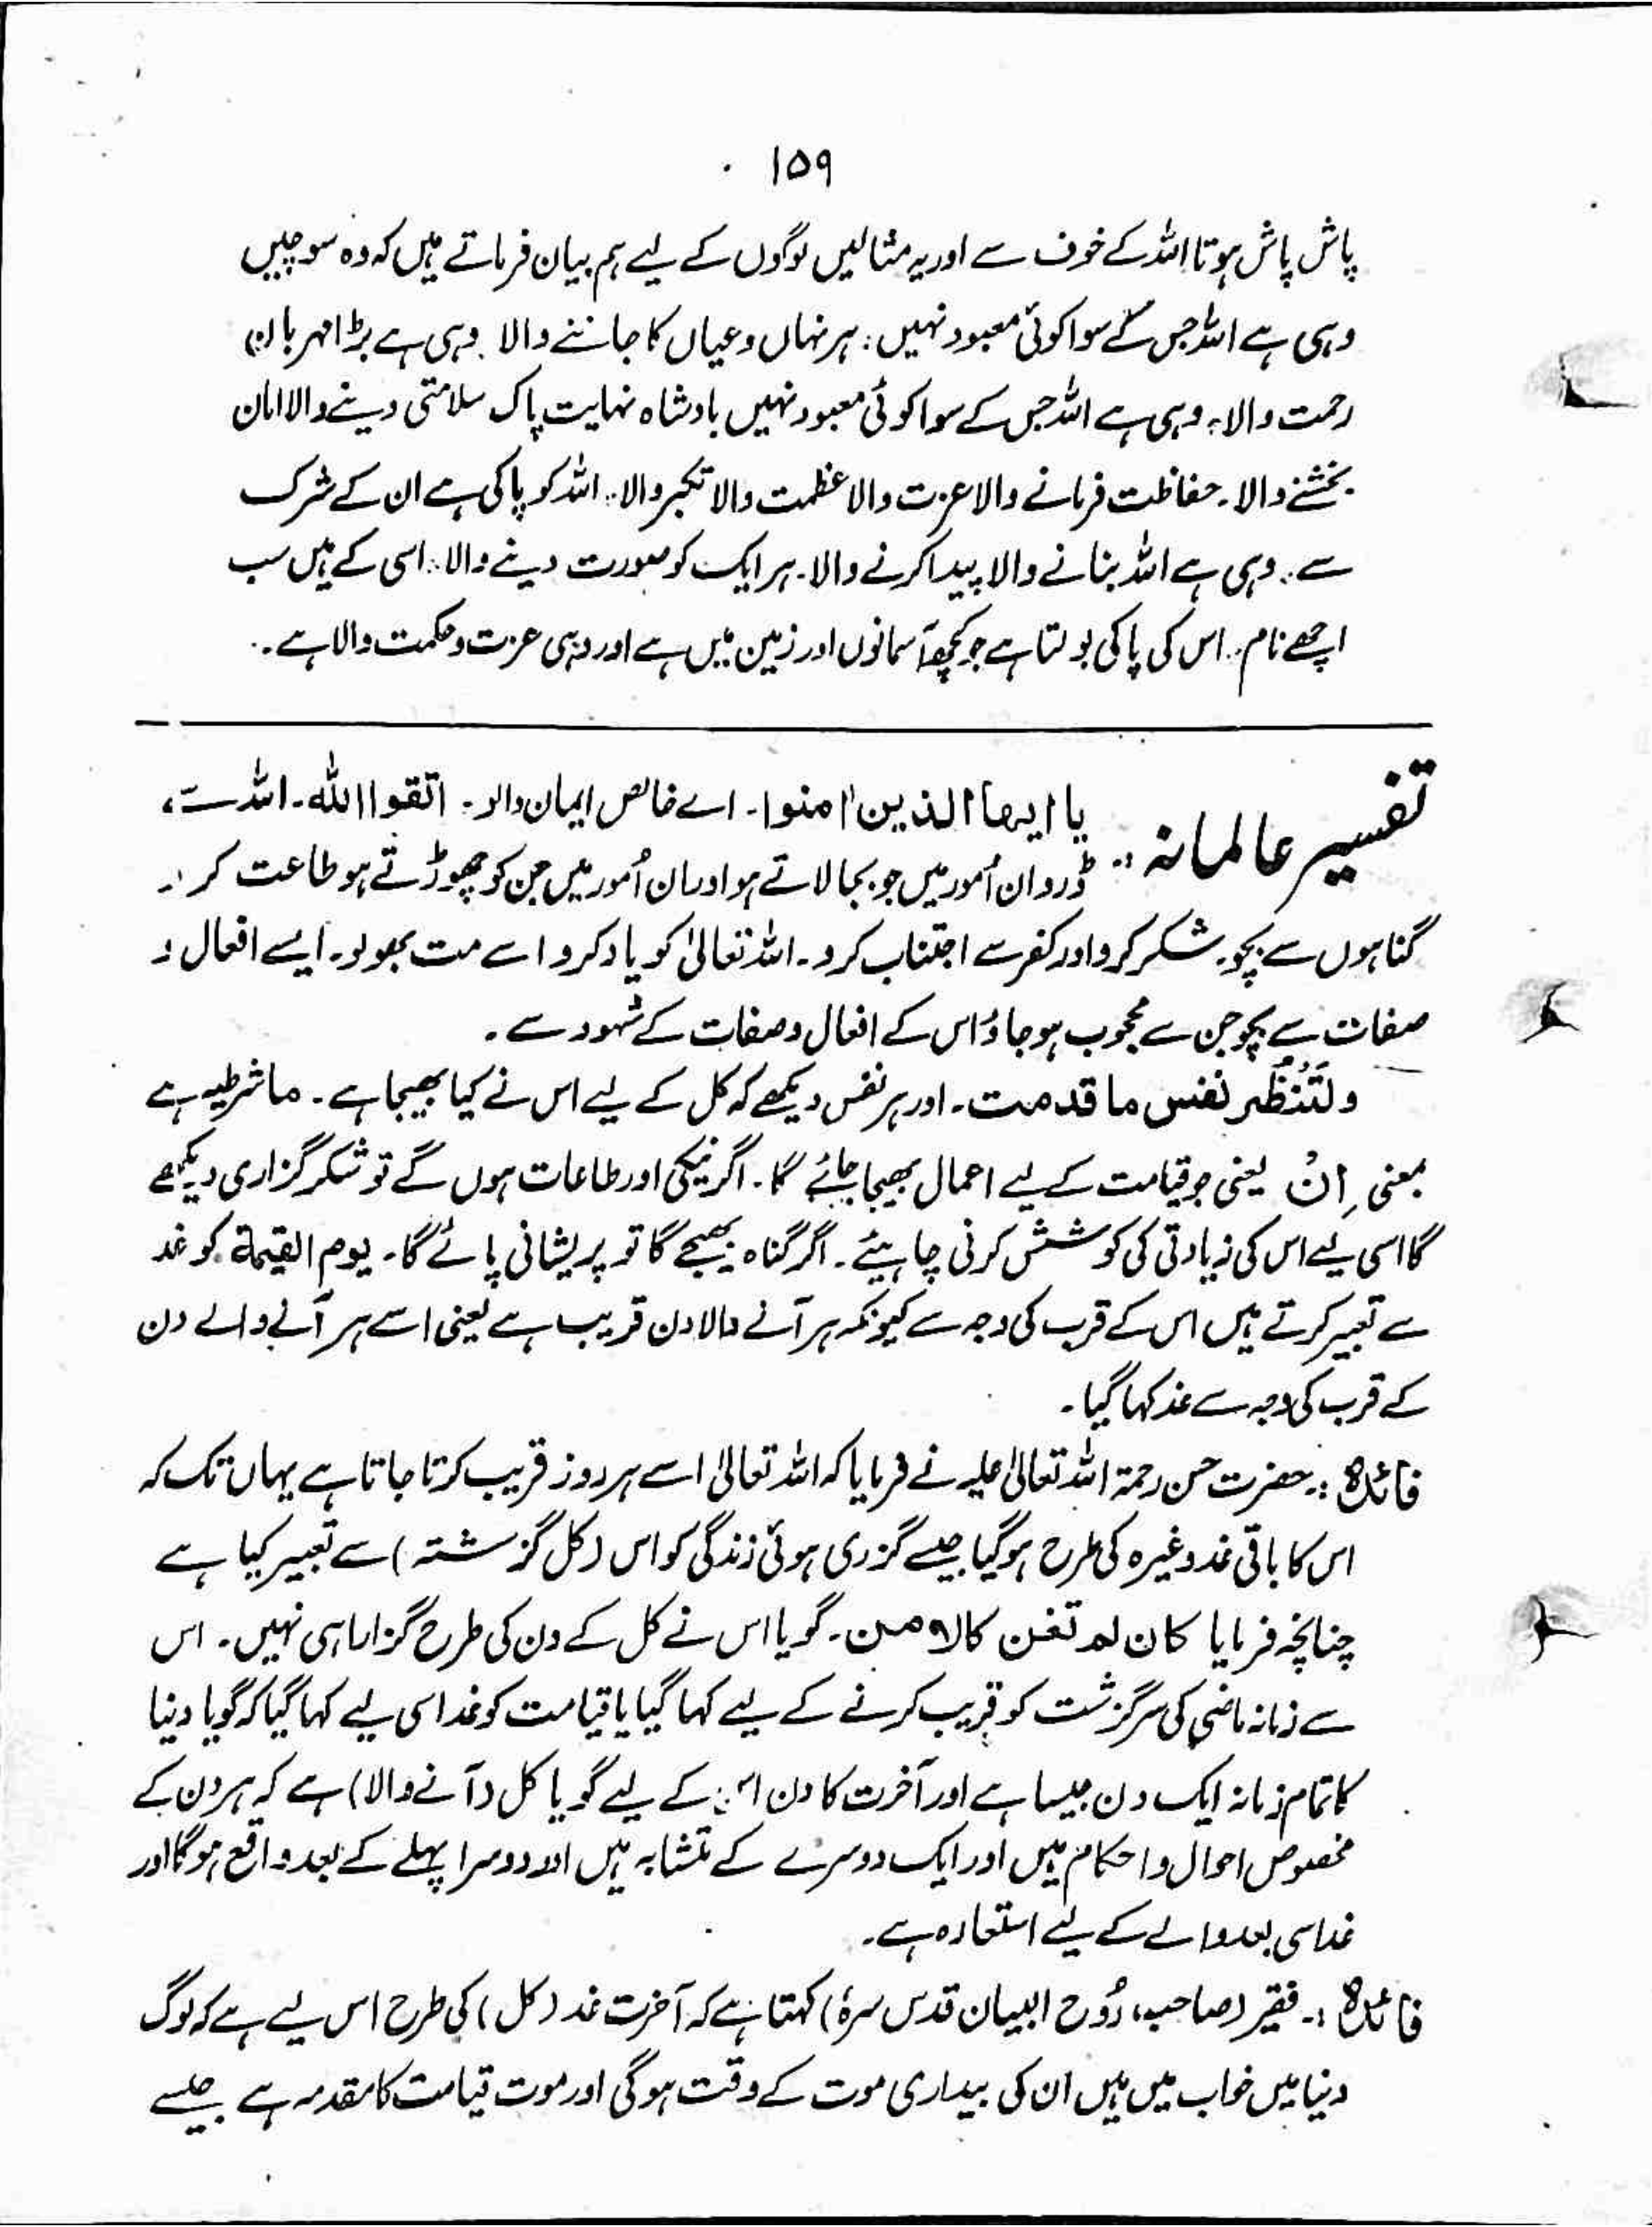 ۱۵۹
پاش پاش ہوتا اللہ کے خوف سے اور یہ مثالیں لوگوں کے لیے ہم بیان فرماتے ہیں کہ وہ سوچیں
وہی ہے اللہ جس کے سوا کوئی معبود نہیں : ہر نہاں و عیاں کا جاننے والا۔ وہی ہے بڑا مہربان
رحمت والا۔ وہی ہے اللہ جس کے سوا کوئی معبود نہیں بادشاہ نہایت پاک سلامتی دینے والا امان
بخشنے والا۔ حفاظت فرمانے والا عزت والا عظمت والا تکبر والا۔ اللہ کو پاکی ہے ان کے شرک
سے۔ وہی ہے اللہ بنانے والا پیدا کرنے والا۔ ہر ایک کو صورت دینے والا۔ اسی کے ہیں سب
اچھے نام۔ اس کی پاکی بولتا ہے جو کچھ آسمانوں اور زمین میں ہے اور وہی عزت و حکمت والا ہے۔
تفسیر عالمانہ :۔ یا ایھا الذین اٰمنوا۔ اے خالص ایمان والو۔ اتقوا اللہ۔ اللہ سے
ڈرو ان اُمور میں جو بجا لاتے ہو اور ان اُمور میں جن کو چھوڑتے ہو طاعت کرو۔
گناہوں سے بچو۔ شکر کرو اور کفر سے اجتناب کرو۔ اللہ تعالیٰ کو یاد کرو اسے مت بھولو۔ ایسے افعال و
صفات سے بچو جن سے محجوب ہو جاؤ اس کے افعال و صفات کے شہود سے۔
ولتَنْظُر نفس ما قدمت۔ اور ہر نفس دیکھے کہ کل کے لیے اس نے کیا بھیجا ہے۔ ما شرطیہ ہے
بمعنی اِنْ یعنی جو قیامت کے لیے اعمال بھیجا جائے گا۔ اگر نیکی اور طاعات ہوں گے تو شکر گزاری دیکھے
گا اسی لیے اس کی زیادتی کی کوشش کرنی چاہیئے۔ اگر گناہ بھیجے گا تو پریشانی پائے گا۔ یوم القیمۃ کو غد
سے تعبیر کرتے ہیں اس کے قرب کی وجہ سے کیونکہ ہر آنے والا دن قریب ہے یعنی اسے ہر آنے والے دن
کے قرب کی وجہ سے غد کہا گیا۔
فائدہ :۔ حضرت حسن رحمۃ اللہ تعالیٰ علیہ نے فرمایا کہ اللہ تعالیٰ اسے ہر روز قریب کرتا جاتا ہے یہاں تک کہ
اس کا باقی غد وغیرہ کی طرح ہو گیا جیسے گزری ہوئی زندگی کو اس (کل گزشتہ) سے تعبیر کیا ہے
چنانچہ فرمایا کان لم تغن کالامس۔ گویا اس نے کل کے دن کی طرح گزارا ہی نہیں۔ اس
سے زمانہ ماضی کی سرگزشت کو قریب کرنے کے لیے کہا گیا یا قیامت کو غد اسی لیے کہا گیا کہ گویا دنیا
کا تمام زمانہ ایک دن جیسا ہے اور آخرت کا دن اس کے لیے گویا کل (آنے والا) ہے کہ ہر دن کے
مخصوص احوال و احکام ہیں اور ایک دوسرے کے متشابہ ہیں اور دوسرا پہلے کے بعد واقع ہو گا اور
غد اسی بعد والے کے لیے استعارہ ہے۔
فائدہ :۔ فقیر (صاحب رُوح البیان قدس سرہٗ) کہتا ہے کہ آخرت غد (کل) کی طرح اس لیے ہے کہ لوگ
دنیا میں خواب میں ہیں ان کی بیداری موت کے وقت ہو گی اور موت قیامت کا مقدمہ ہے جیسے